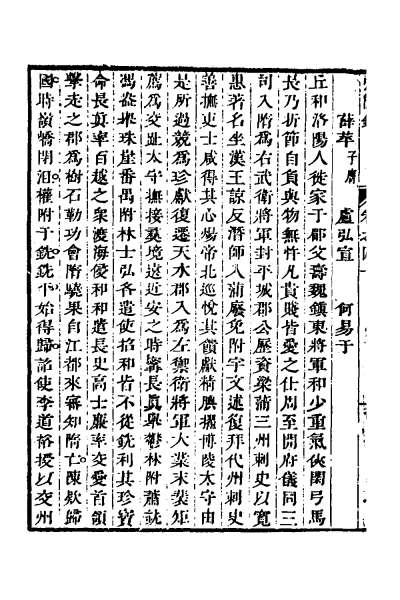 薛苹 子膺 盧弘宣 何易于
丘和洛陽人徙家于郿父壽魏鎮東將軍和少重氣俠閑弓馬
長乃折節自負與物無忤凡貴賤皆愛之仕周至開府儀同三
司入隋為右武衛將軍封平城郡公歷資梁蒲三州刺史以寬
惠著名坐漢王諒反潛師入蒲廢免附宇文述復拜代州刺史
善撫吏士咸得其心煬帝北巡悅其饋獻精腆擢博陵太守由
是所過競為珍獻復遷天水郡入為左禦衛將軍大業末裴矩
薦為交趾太守撫接夷境遠近安之時甯長眞舉鬱林附蕭銑
馮盎舉珠崖番禺附林士弘各遣使招和皆不從銑利其珍寶
命長眞率百越之衆渡海侵和和遣長史高士廉率交愛首領
擊走之郡為樹石勒功會隋驍果自江都來審知隋亡陳欵歸
國時嶺嶠閉沮權附于銑銑平始得歸詔使李道裕授以交州